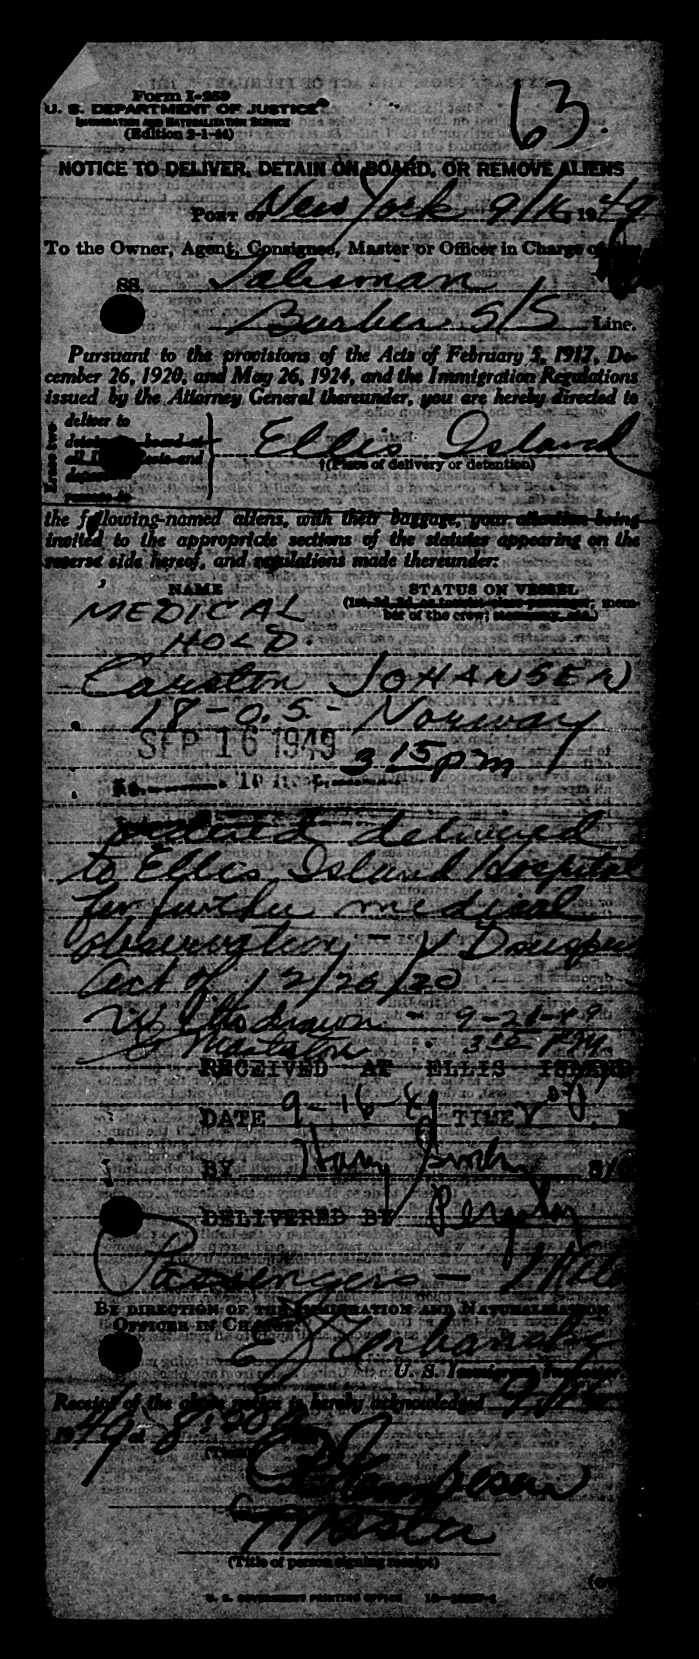 63.
Form I-259
U. S. DEPARTMENT OF JUSTICE
IMMIGRATION AND NATURALIZATION SERVICE
(Edition 2-1-44)
NOTICE TO DELIVER, DETAIN ON BOARD, OR REMOVE ALIENS
PORT OF New York 9/16, 1949
To the Owner, Agent, Consignee, Master or Officer in Charge of
SS. Talisman
Barber S/S Line.
Pursuant to the provisions of the Acts of February 5, 1917, De-
cember 26, 1920, and May 26, 1924, and the Immigration Regulations
issued by the Attorney General thereunder, you are hereby directed to
deliver to
Ellis Island
†(Place of delivery or detention)
the following-named aliens, with their baggage, your attention being
invited to the appropriate sections of the statutes appearing on the
reverse side hereof, and regulations made thereunder:
NAME STATUS ON VESSEL
mem-
ber of the crew;
MEDICAL
HOLD.
Carsten JOHANSEN
18 - O.S. - Norway
SEP 16 1949 3 15 pm
delivered
to Ellis Island Hospital
for further medical
observation -
Act of 12/26/20
Withdrawn - 9-21-49
3 15 PM.
RECEIVED AT ELLIS ISLAND
DATE 9-16-49 TIME
BY Harry
DELIVERED BY
Passengers -
BY DIRECTION OF THE IMMIGRATION AND NATURALIZATION
OFFICER IN CHARGE:
U. S. Immigrant Inspector
Receipt of the above notice is hereby acknowledged 9/16
1949 at 8:00
Master
(Title of person signing receipt)
U. S. GOVERNMENT PRINTING OFFICE